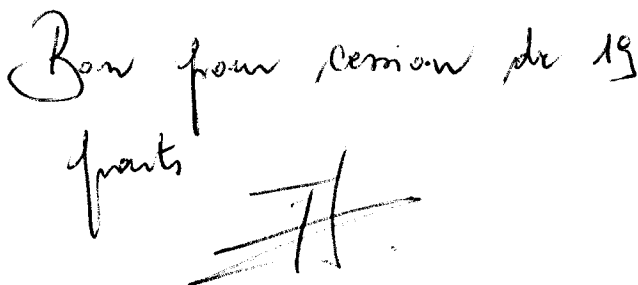 Bon pour cession de 19
parts